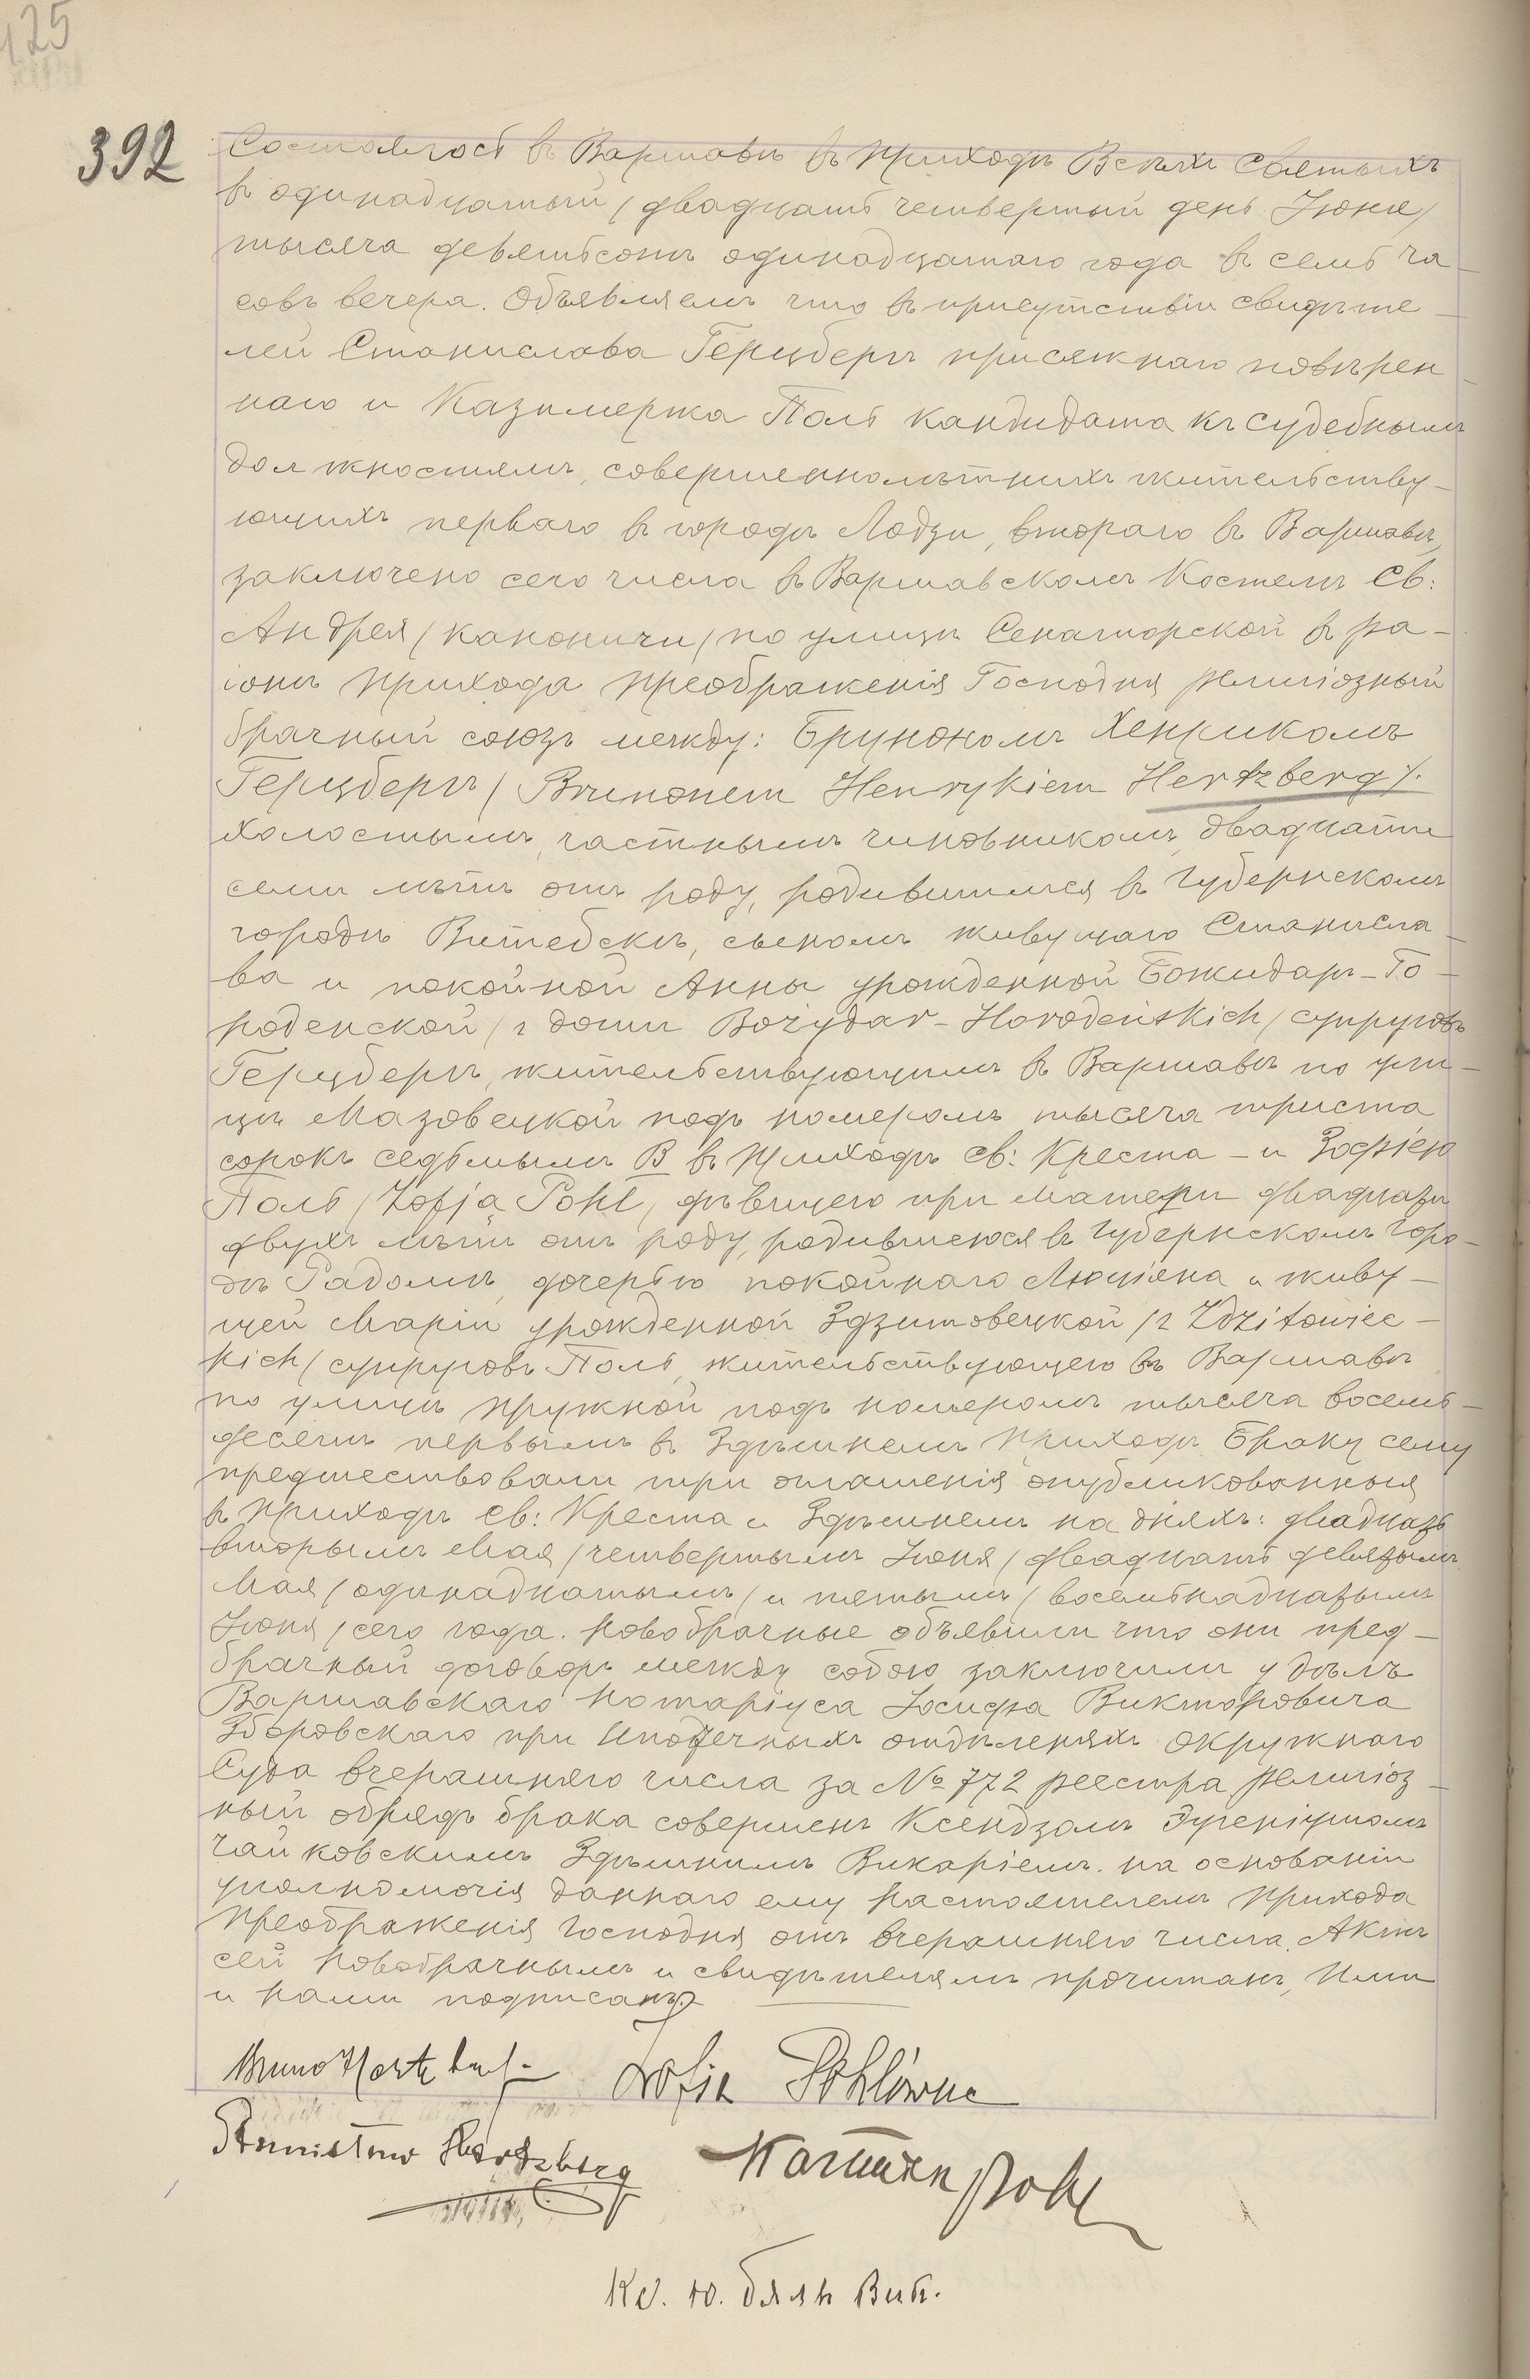 125
392
Состоялось въ Варшавѣ въ приходѣ Всѣхъ Святыхъ
въ одинадцатый / двадцать четвертый день Іюня /
тысяча девятьсотъ одинадцатаго года въ семь ча-
совъ вечера. Объявляемъ что въ присутствіи свидѣте-
лей Станислава Герцбергъ присяжнаго повѣрен-
наго и Казимержа Поль кандидата къ судебнымъ
должностямъ, совершеннолѣтнихъ жительству-
ющихъ перваго въ городѣ Лодзи, втораго въ Варшавѣ,
заключено сего числа въ Варшавскомъ Костелѣ Св:
Андрея / каноничи / по улицѣ Сенаторской въ ра-
іонѣ прихода Преображенія Господня религіозный
брачный союзъ между: Брунономъ Хенрикомъ
Герцбергъ / Brunonem Henrykiem Hertzberg /.
холостымъ, частнымъ чиновникомъ двадцати
семи лѣтъ отъ роду, родившимся въ губернскомъ
городѣ Витебскѣ, сыномъ живущаго Станисла-
ва и покойной Анны урожденной Божидаръ-Го-
роденской / z domu Bożydar-Horodeńskich / супруговъ
Герцбергъ, жительствующимъ въ Варшавѣ по ули-
цѣ Мазовецкой подъ номеромъ тысяча триста
сорокъ седьмымъ В въ приходѣ Св: Креста - и Зофіею
Поль / Zofją Pohl, дѣвицею при матери двадцати
двухъ лѣтъ отъ роду, родившеюся въ губернскомъ горо-
дѣ Радомѣ, дочерью покойнаго Люціяна и живу-
щей Маріи урожденной Здзитовецкой / z Zdzitowiec-
kich / супруговъ Поль, жительствующею въ Варшавѣ
по улицѣ Пружной подъ номеромъ тысяча восемь-
десятъ первымъ въ Здѣшнемъ приходѣ. Браку сему
предшествовали три оглашенія опубликованныя
въ приходѣ Св: Креста и Здѣшнемъ на дняхъ: двадцать
вторымъ Мая / четвертымъ Іюня / двадцать девятымъ
Мая / одинадцатымъ / и пятымъ / восемьнадцатымъ
Іюня / сего года. Новобрачные объявили что они пред-
брачный договоръ между собою заключили у дѣлъ
Варшавскаго Нотаріуса Іосифа Викторовича
Зборовскаго при Ипотечныхъ отдѣленіяхъ Окружнаго
Суда вчерашняго числа за № 772 реестра религіоз-
ный обрядъ брака совершенъ Ксендзомъ Эугеніушомъ
Чайковскимъ Здѣшнимъ Викаріемъ. на основаніи
уполномочія даннаго ему Настоятелемъ прихода
Преображенія Господня отъ вчерашняго числа. Актъ
сей Новобрачнымъ и свидѣтелямъ прочитанъ, Ими
и Нами подписанъ.
Bruno Hertzberg
Zofia Pohlówna
Stanisław Hertzberg
Pohl
Кс. Ю. Вик.